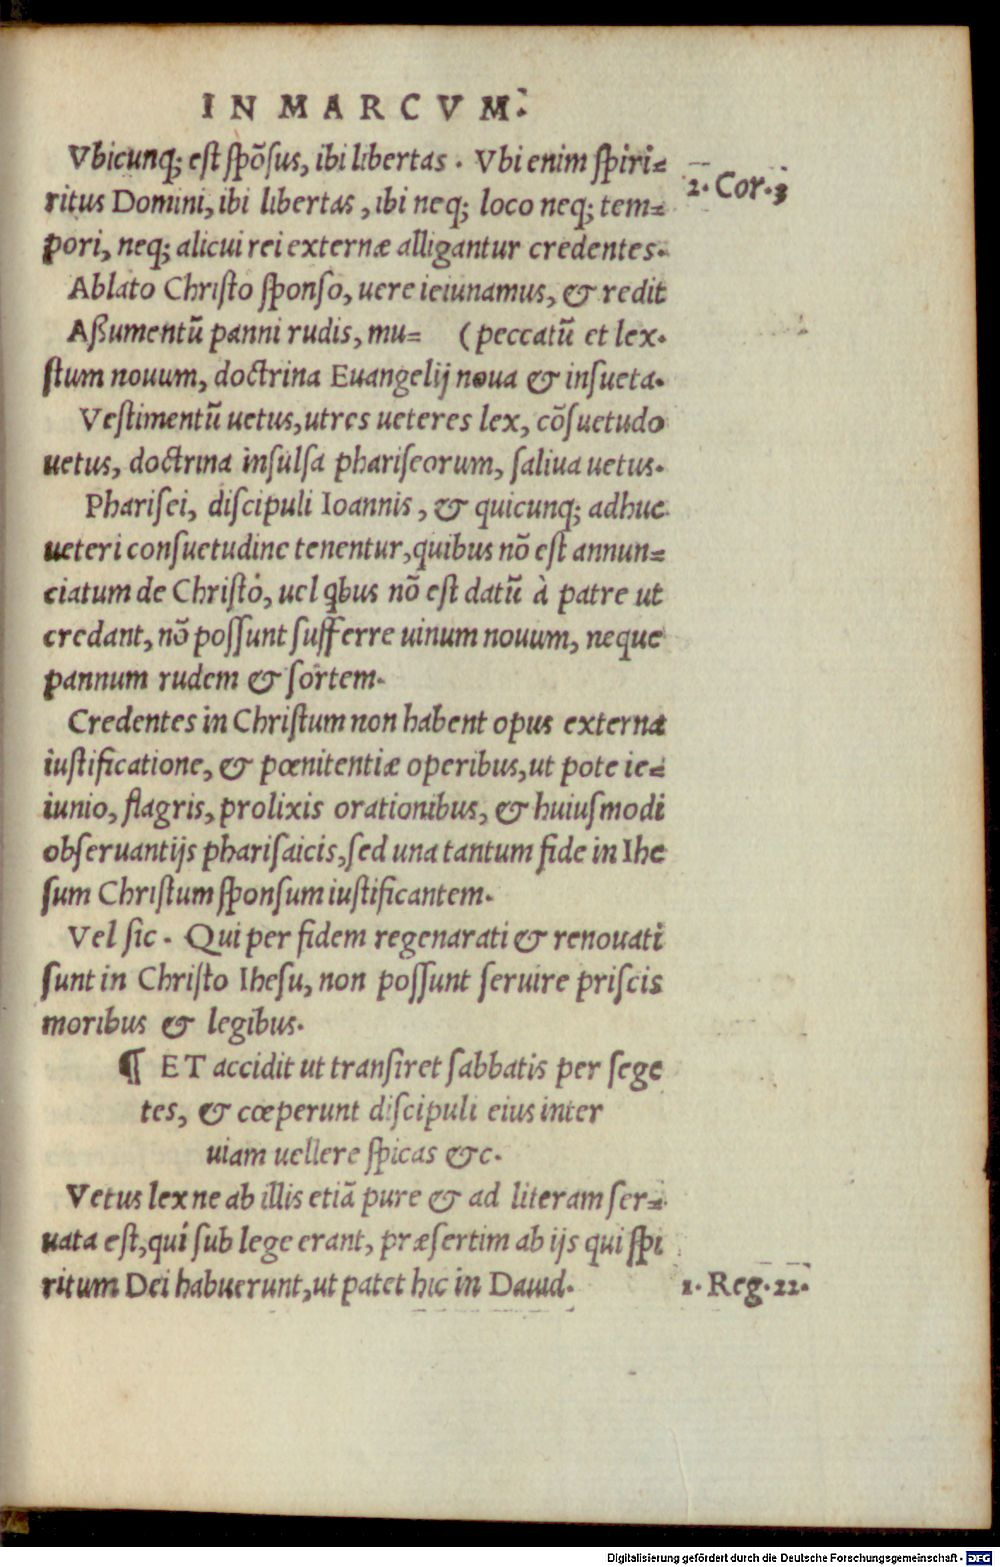 IN MARCVM.
Vbicunq; est spõsus, ibi libertas. Vbi enim spiri=
ritus Domini, ibi libertas, ibi neq; loco neq; tem=
pori, neq; alicui rei externæ alligantur credentes.
2. Cor. 3
Ablato Christo sponso, uere ieiunamus, & redit
Aßumentũ panni rudis, mu= (peccatũ et lex.
stum nouum, doctrina Euangelij noua & insueta.
Vestimentũ uetus, utres ueteres lex, cõsuetudo
uetus, doctrina insulsa phariseorum, saliua uetus.
Pharisei, discipuli Ioannis, & quicunq; adhuc
ueteri consuetudine tenentur, quibus nõ est annun=
ciatum de Christo, uel qbus nõ est datũ à patre ut
credant, nõ possunt sufferre uinum nouum, neque
pannum rudem & sortem.
Credentes in Christum non habent opus externa
iustificatione, & pœnitentiæ operibus, ut pote ie=
iunio, flagris, prolixis orationibus, & huiusmodi
obseruantijs pharisaicis, sed una tantum fide in Ihe
sum Christum sponsum iustificantem.
Vel sic. Qui per fidem regenarati & renouati
sunt in Christo Ihesu, non possunt seruire priscis
moribus & legibus.
¶ ET accidit ut transiret sabbatis per sege
tes, & cœperunt discipuli eius inter
uiam uellere spicas &c.
Vetus lex ne ab illis etiã pure & ad literam ser=
uata est, qui sub lege erant, præsertim ab ijs qui spi
ritum Dei habuerunt, ut patet hic in Dauid.
1. Reg. 22.
Digitalisierung gefördert durch die Deutsche Forschungsgemeinschaft - DFG